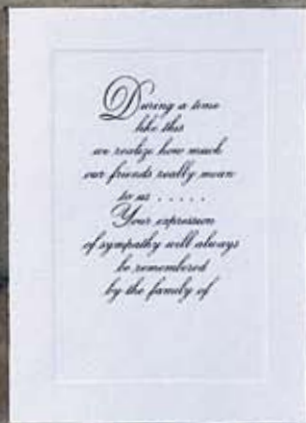 During a time
like this
we realize how much
our friends really mean
to us . . . . .
Your expression
of sympathy will always
be remembered
by the family of